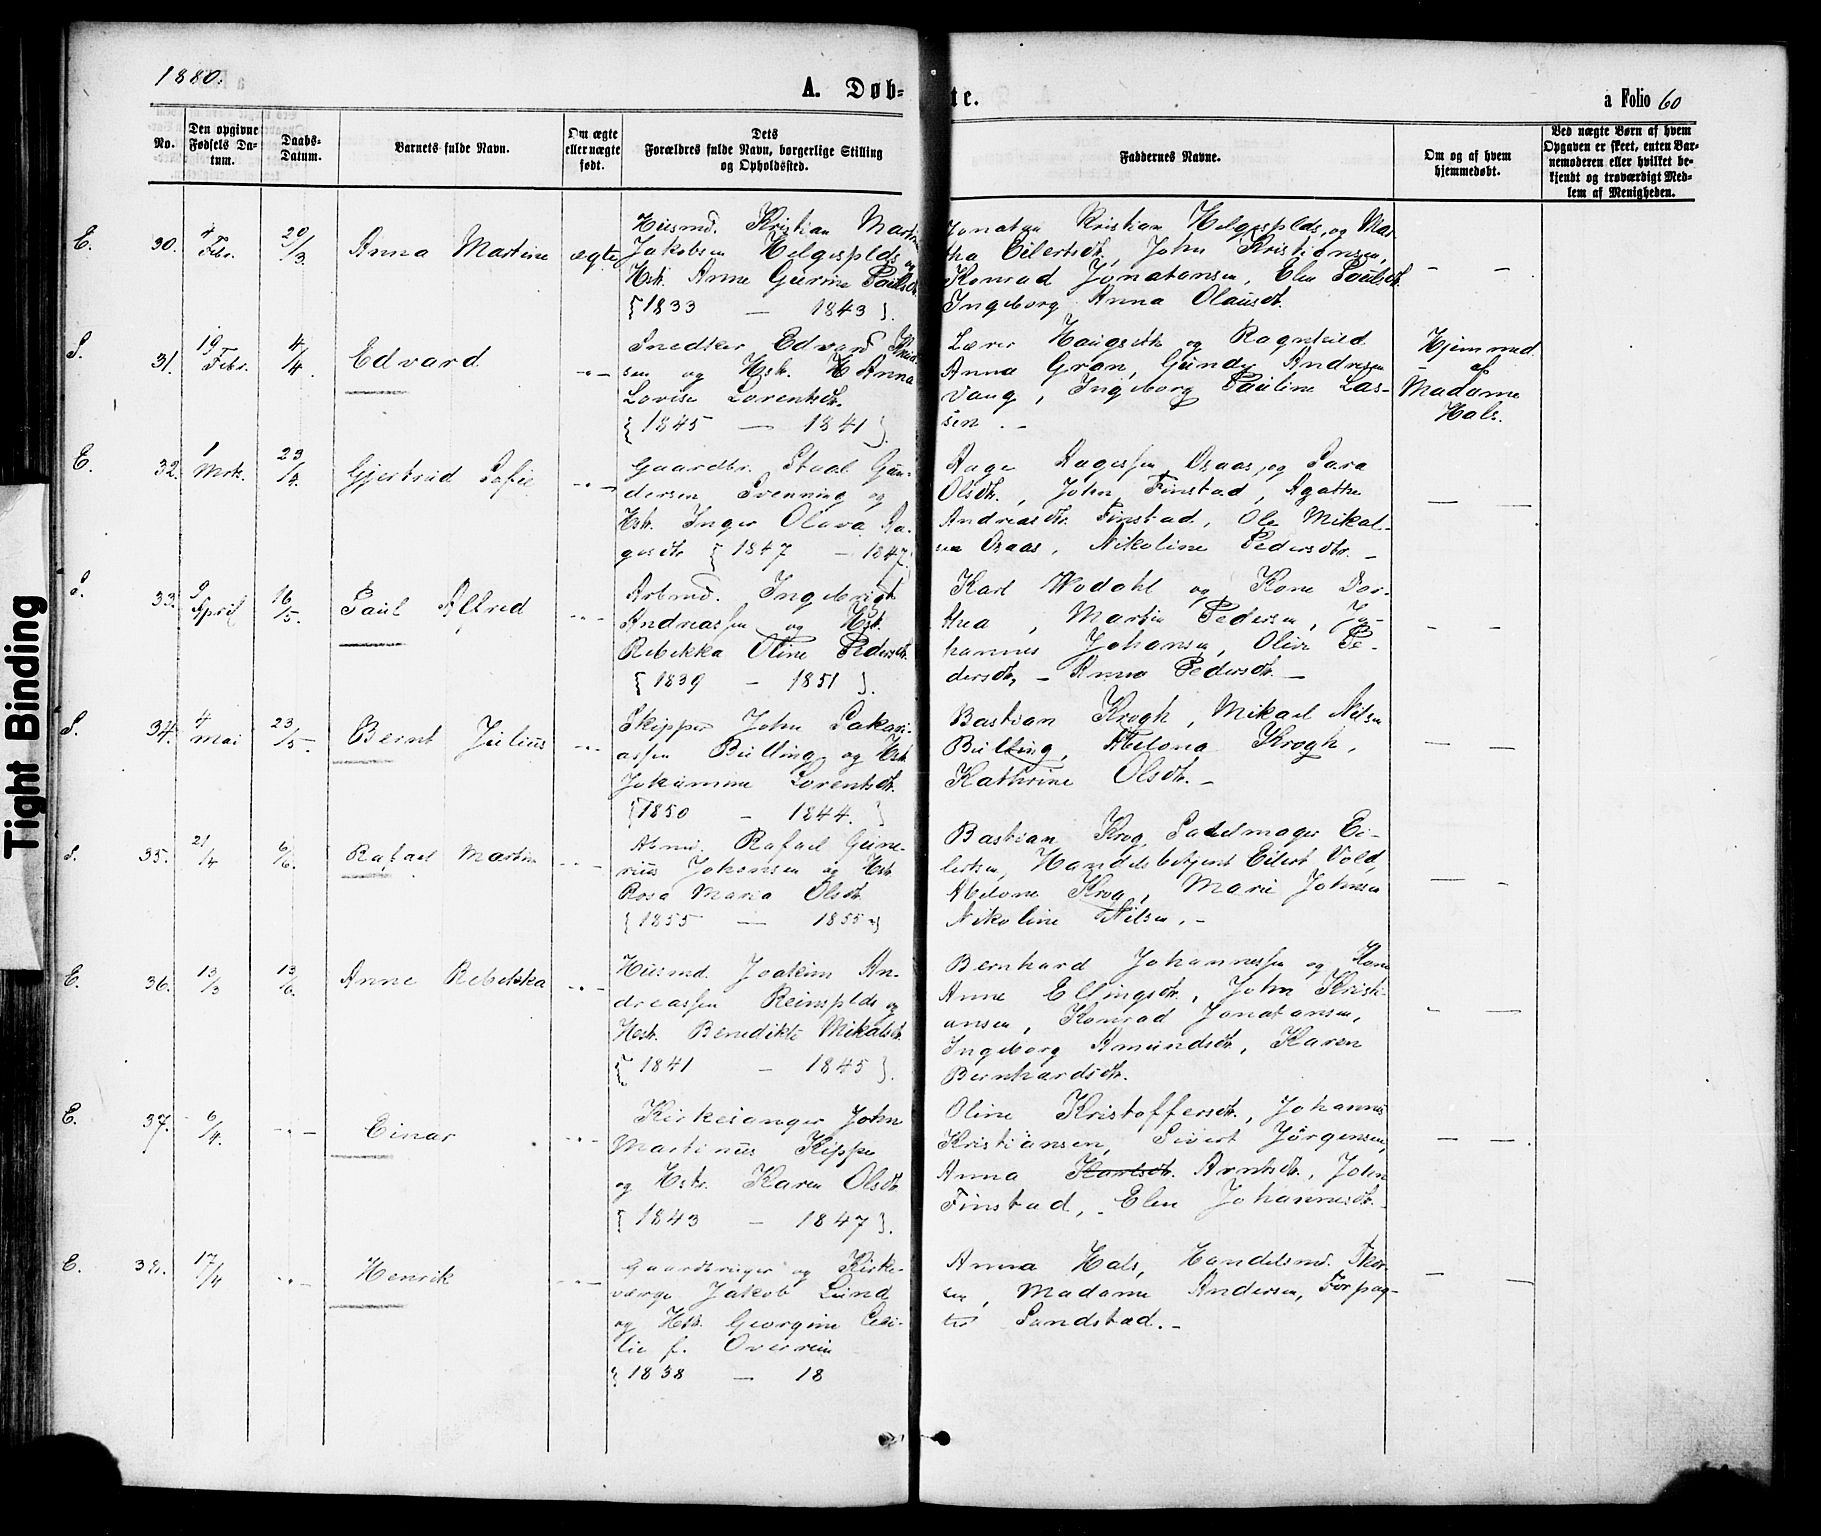 1880.
A. Døb-
te.
a Folio 60
No.
Den opgivne
Fødsels Da-
tum.
Daabs-
Datum.
Barnets fulde Navn.
Om ægte
eller uægte
født.
Dets
Forældres fulde Navn, borgerlige Stilling
og Opholdssted.
Faddernes Navne.
Om og af hvem
hjemmedøbt.
Ved uægte Børn af hvem
Opgaven er skeet, enten Bar-
nemoderen eller hvilket be-
kjendt og troværdigt Med-
lem af Menigheden.
E. 30. 4 Febr. 20/3. Anna Martine ægte
Husmd. Kristian Martin
Jakobsen Helgesplds og
Hst. Anne Gurine Paulsdt.
{1833 — 1843}.
Jonatan Kristian Helgesplds, og Mar-
tha Eilertsdt, John Kristiansen,
Konrad Jonatansen, Elen Paulsdt.
Ingeborg Anna Olausdt.
— —
S. 31. 19 Febr. 4/4. Edvard -"-
Snedker Edvard
sen og Hst. Anna
Lovise Lorentsdt.
{1845 — 1841}.
Lærer og Ragnhild
Anna Grøn, Andresen
Vang, Ingeborg Pauline Las-
sen. -
Hjemmed.
af
Madame
Hals.
E. 32. 1 Mrk. 23/4. Gjertrud Sofie -"-
Gaardbr. Staal Gun-
dersen Svenning og
Hst. Inger Olava Aa-
gesdt {1847 — 1847}
Aage Aagessen Osaas, og Sara
Olsdt., John Finstad, Agathe
Andreasdt. Finstad, Ole Mikal-
sen Osaas, Nikoline Pedersdtr. -
— —
S. 33. 9 April 16/5. Paul Alfred -"-
Arbmd. Ingebrigt
Andreassen og Hst.
Rebekka Oline Pedersdt.
{1839 — 1851}.
Karl Wodahl og Kone Dor-
thea, Martin Pedersen, Jo-
hannes Johansen, Olive Pe-
dersdt, - Anna Pedersdt. -
— —
S. 34. 4 mai 23/5. Bernt Julius -"-
Skipper John Sakari-
assen Bulling og Hst.
Jokumine Lorentsdt.
{1850 — 1844.}
Bastian Krogh, Mikael Nilsen
Bulling, Abelona Krogh,
Kathrine Olsdt. -
— —
S. 35. 21/4 6/6. Rafael Martin -"-
Abmd. Rafael Gune-
rius Johansen og Hst.
Rosa Maria Olsdt.
{1855 — 1855}
Bastian Krog, Sadelmager Ei-
lertsen, Handelsbetjent Eilert Vold,
Abelone Krog, Marie Johnsen
Nikoline Nilsen. -
— —
E. 36. 13/3 13/6. Anne Rebekka -"-
Husmd. Joakim An-
dreassen Reinsplds og
Hst. Benedikte Mikalsdt.
{1841 — 1845}.
Bernhard Johannessen og Kone
Anne Ellingsdt., John Kristi-
ansen, Konrad Jonatansen,
Ingeborg Amundsdt., Karen
Bernhardsdt.
— —
E. 37. 6/4. -"- Einar -"-
Kirkesanger John
Martinus Kippe
og Hst. Karen Olsdt.
{1843 — 1847}.
Oline Kristoffersdt., Johannes
Kristiansen, Sivert Jørgensen,
Anna Karlsdt. Arntsdt., John
Finstad, Elen Johannesdt. -
— —
E. 38. 17/4 -"- Henrik -"-
Gaardbruger og Kirke-
værge Jakob Lund
og Hst. Georgine Cesi-
lie f. Overrein
{1838 — 18
Anna Hals, Handelsmd.
, Madame Andersen, Forpag-
ter Sandstad. -
— —
Tight Binding